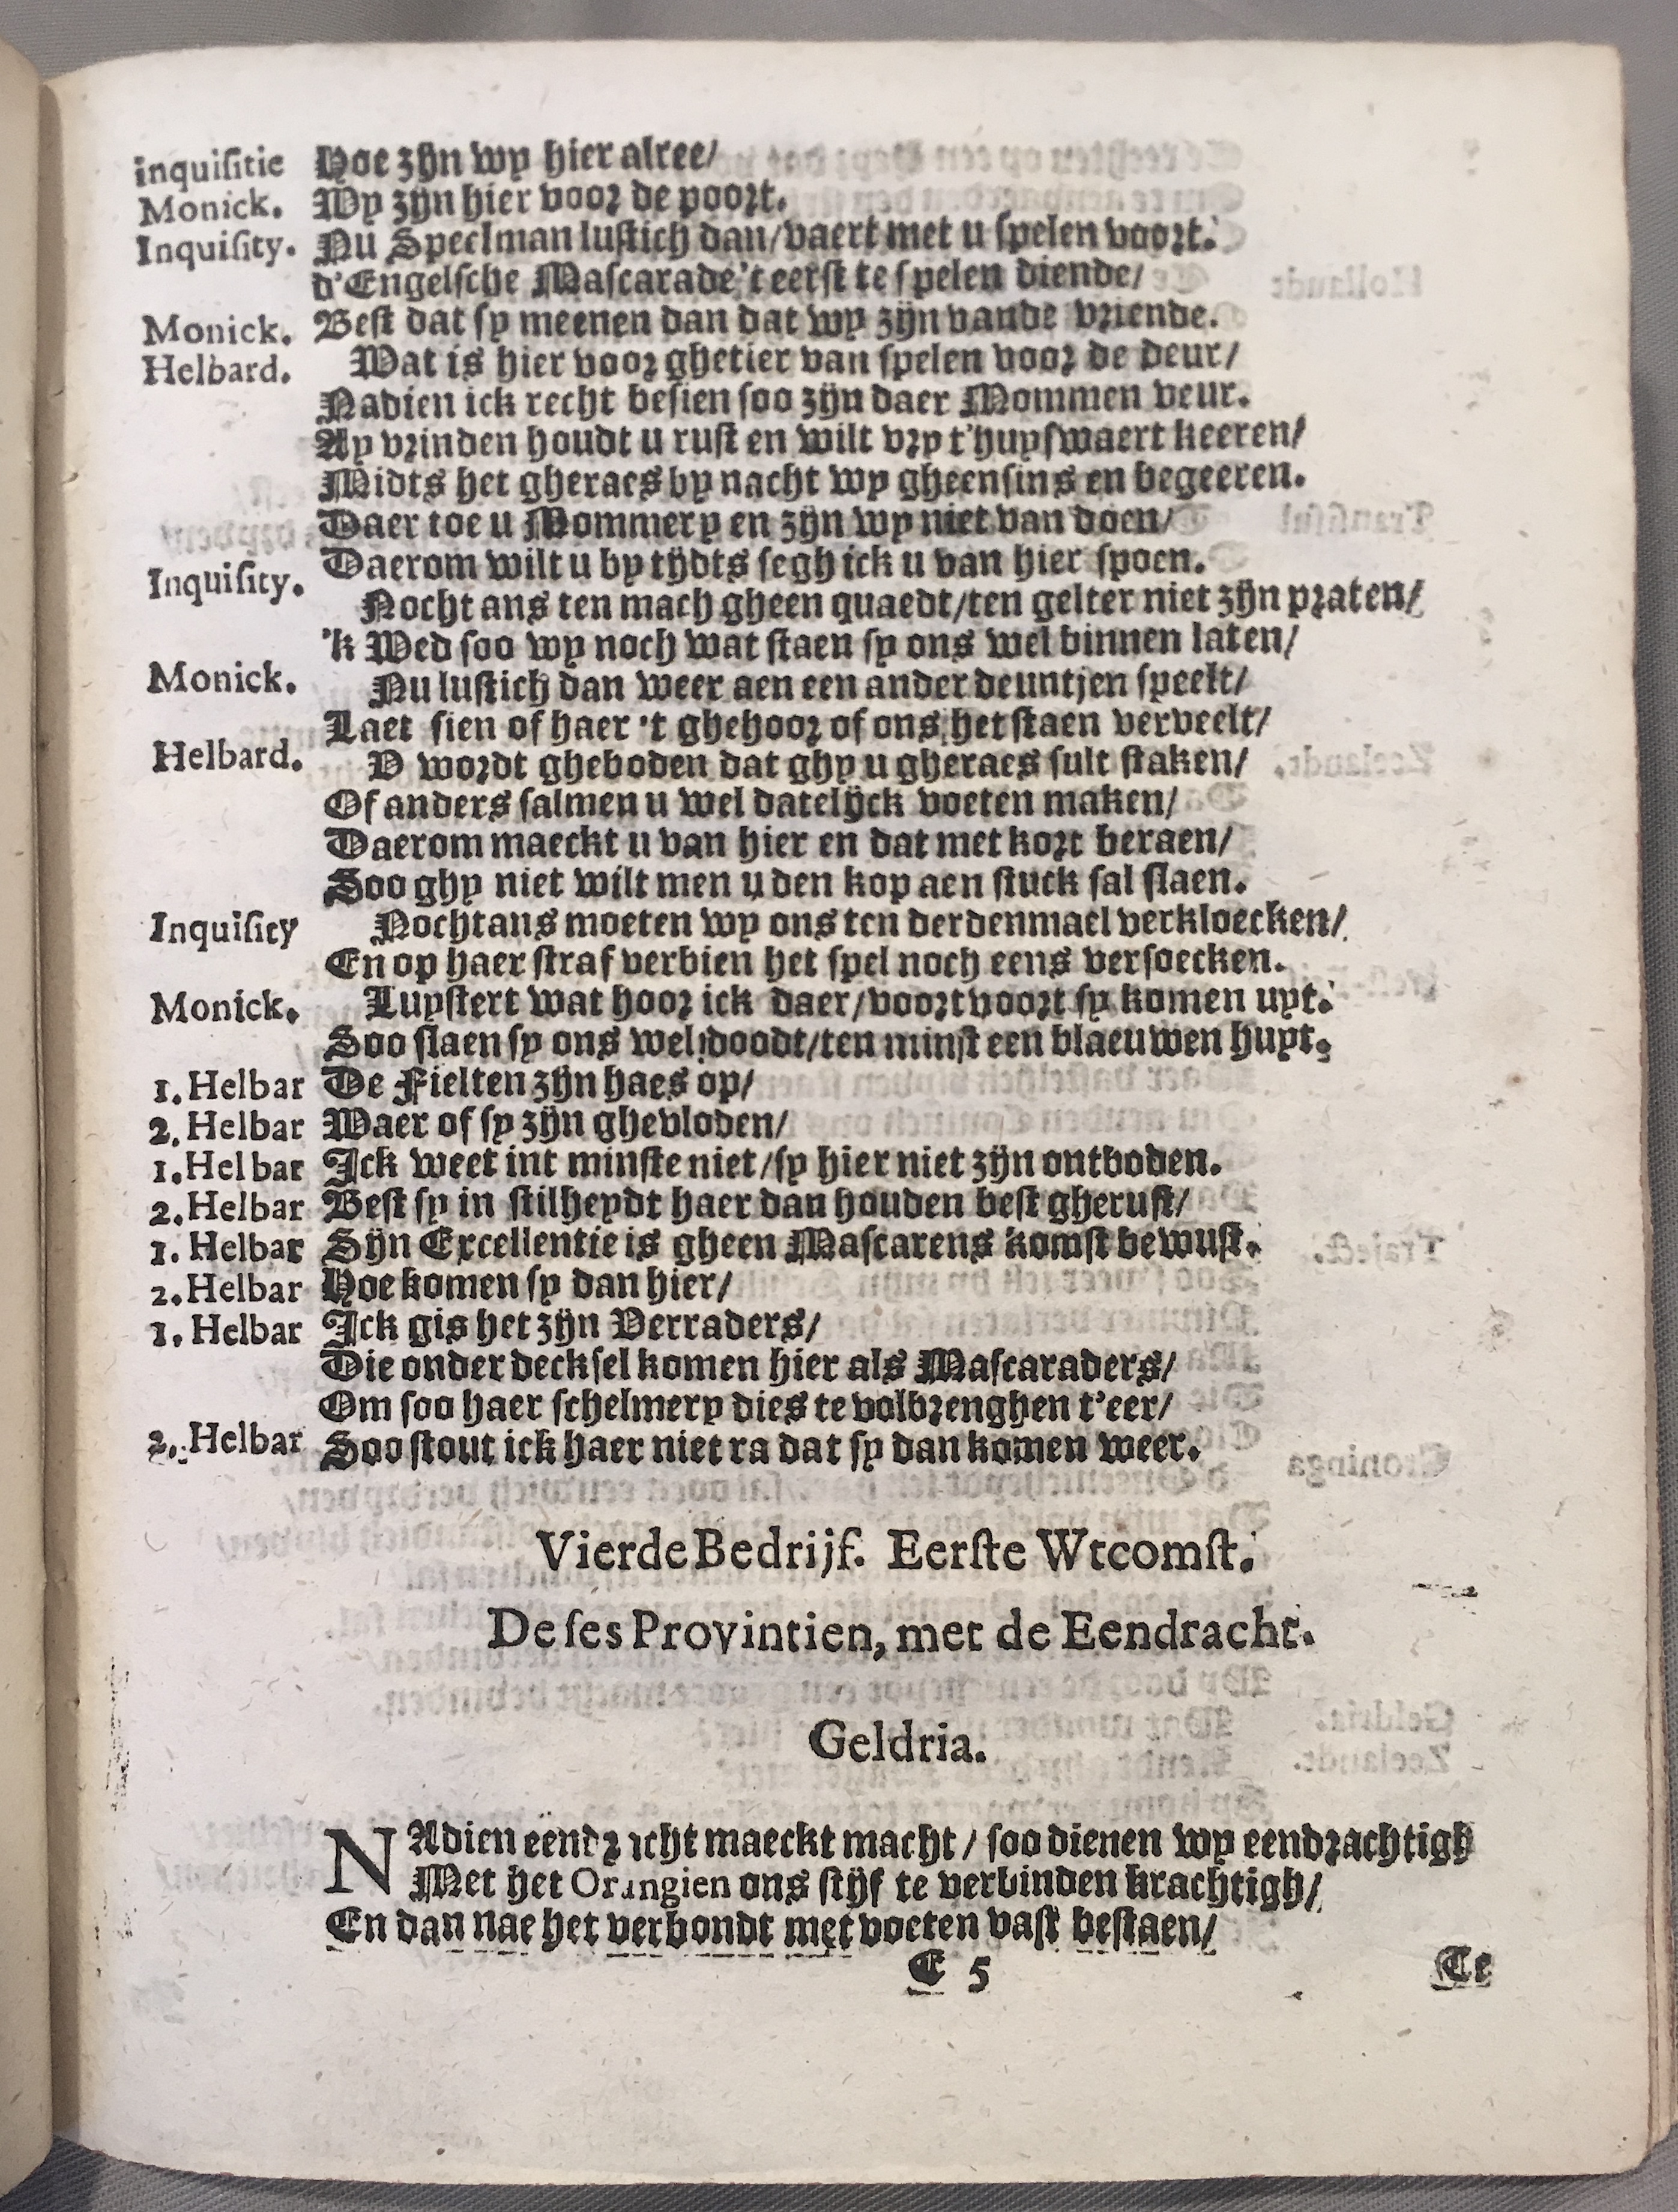 inquiſitie Hoe zijn wy hier alree/
Monick. Wy zijn hier voor de poort.
Inquiſity. Nu Speelman luſtich dan/vaert met u ſpelen voort.
d'Engelſche Maſcarade 't eerſt te ſpelen diende/
Monick. Beſt dat ſy meenen dan dat wy zijn vande vriende.
Helbard. Wat is hier voor ghetier van ſpelen voor de deur/
Nadien ick recht beſien ſoo zijn daer Mommen veur.
Ay vrinden houdt u ruſt en wilt vry t'huyſwaert keeren/
Midts het gheraes by nacht wy gheenſins en begeeren.
Daer toe u Mommery en zijn wy niet van doen/
Daerom wilt u by tijdts ſegh ick u van hier ſpoen.
Inquiſity. Nochtans ten mach gheen quaedt/ten gelter niet zijn praten/
'k Wed ſoo wy noch wat ſtaen ſy ons wel binnen laten/
Monick. Nu luſtich dan weer aen een ander deuntjen ſpeelt/
Laet ſien of haer 't ghehoor of ons het ſtaen verveelt/
Helbard. V wordt gheboden dat ghy u gheraes ſult ſtaken/
Of anders ſalmen u wel datelijck voeten maken/
Daerom maeckt u van hier en dat met kort beraen/
Soo ghy niet wilt men u den kop aen ſtuck ſal ſlaen.
Inquiſity Nochtans moeten wy ons ten derdenmael verkloecken/
En op haer ſtraf verbien het ſpel noch eens verſoecken.
Monick. Luyſtert wat hoor ick daer/voort voort ſy komen uyt.
Soo ſlaen ſy ons wel doodt/ten minſt een blaeuwen huyt.
1. Helbar De Fielten zijn haes op/
2. Helbar Waer of ſy zijn ghevloden/
1. Helbar Ick weet int minſte niet/ſy hier niet zijn ontboden.
2. Helbar Beſt ſy in ſtilheydt haer dan houden beſt gheruſt/
1. Helbar Sijn Excellentie is gheen Maſcarens komſt bewuſt.
2. Helbar Hoe komen ſy dan hier/
1. Helbar Ick gis het zijn Verraders/
Die onder deckſel komen hier als Maſcaraders/
Om ſoo haer ſchelmery dies te volbrenghen t'eer/
2. Helbar Soo ſtout ick haer niet ra dat ſy dan komen weer.
Vierde Bedrijf. Eerſte Wtcomſt.
De ſes Provintien, met de Eendracht.
Geldria.
NAdien eendracht maeckt macht / ſoo dienen wy eendrachtigh
Met het Orangien ons ſtijf te verbinden krachtigh/
En dan nae het verbondt met voeten vaſt beſtaen/
E 5 Te